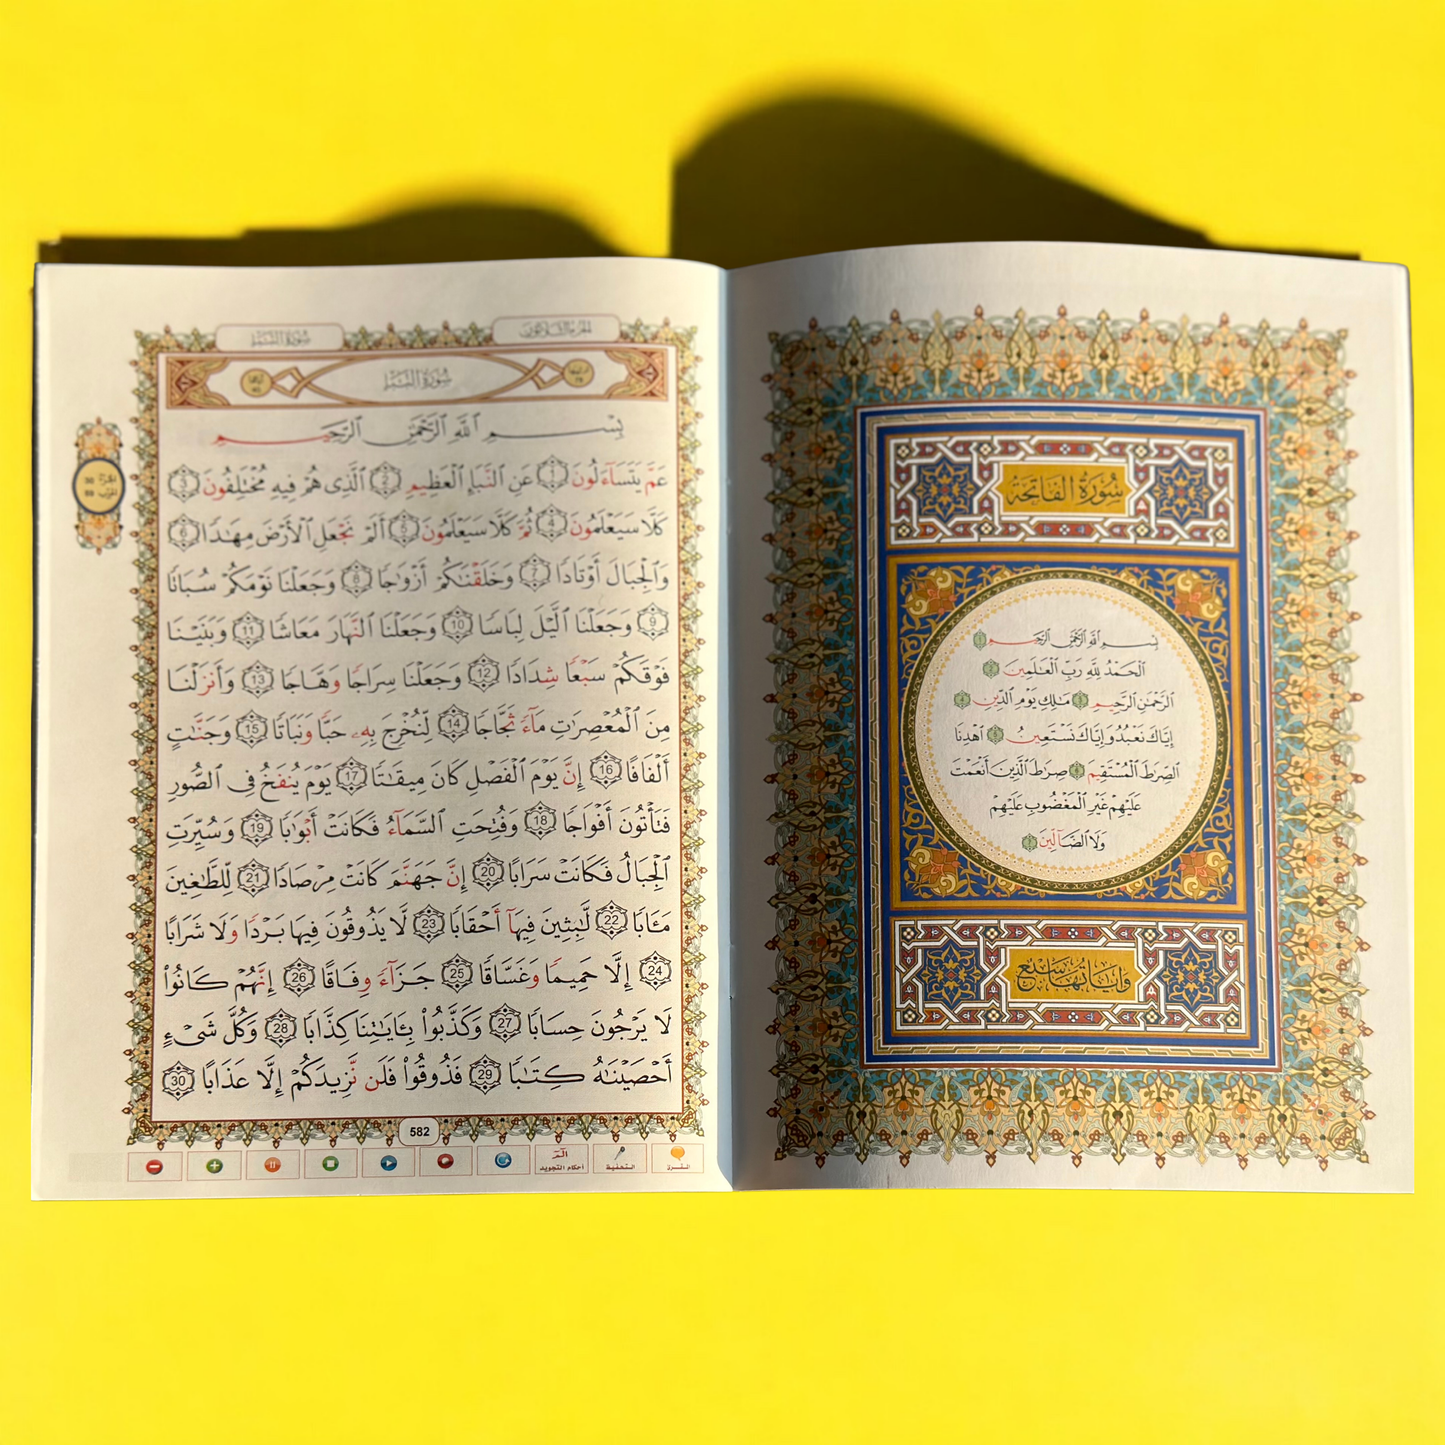 سُورَةُ الفَاتِحَة
بِسْمِ ٱللَّهِ ٱلرَّحْمَٰنِ ٱلرَّحِيمِ ١
ٱلْحَمْدُ لِلَّهِ رَبِّ ٱلْعَٰلَمِينَ ٢
ٱلرَّحْمَٰنِ ٱلرَّحِيمِ ٣ مَٰلِكِ يَوْمِ ٱلدِّينِ ٤
إِيَّاكَ نَعْبُدُ وَإِيَّاكَ نَسْتَعِينُ ٥ ٱهْدِنَا
ٱلصِّرَٰطَ ٱلْمُسْتَقِيمَ ٦ صِرَٰطَ ٱلَّذِينَ أَنْعَمْتَ
عَلَيْهِمْ غَيْرِ ٱلْمَغْضُوبِ عَلَيْهِمْ
وَلَا ٱلضَّآلِّينَ ٧
وَآيَاتُهَا سَبْعٌ
الجزء الثلاثون
سُورَةُ النَّبَإِ
سُورَةُ النَّبَإِ
بِسْمِ ٱللَّهِ ٱلرَّحْمَٰنِ ٱلرَّحِيمِ
عَمَّ يَتَسَآءَلُونَ 1 عَنِ ٱلنَّبَإِ ٱلْعَظِيمِ 2 ٱلَّذِى هُمْ فِيهِ مُخْتَلِفُونَ 3
كَلَّا سَيَعْلَمُونَ 4 ثُمَّ كَلَّا سَيَعْلَمُونَ 5 أَلَمْ نَجْعَلِ ٱلْأَرْضَ مِهَٰدًا 6
وَٱلْجِبَالَ أَوْتَادًا 7 وَخَلَقْنَٰكُمْ أَزْوَٰجًا 8 وَجَعَلْنَا نَوْمَكُمْ سُبَاتًا
9 وَجَعَلْنَا ٱلَّيْلَ لِبَاسًا 10 وَجَعَلْنَا ٱلنَّهَارَ مَعَاشًا 11 وَبَنَيْنَا
فَوْقَكُمْ سَبْعًا شِدَادًا 12 وَجَعَلْنَا سِرَاجًا وَهَّاجًا 13 وَأَنزَلْنَا
مِنَ ٱلْمُعْصِرَٰتِ مَآءً ثَجَّاجًا 14 لِّنُخْرِجَ بِهِۦ حَبًّا وَنَبَاتًا 15 وَجَنَّٰتٍ
أَلْفَافًا 16 إِنَّ يَوْمَ ٱلْفَصْلِ كَانَ مِيقَٰتًا 17 يَوْمَ يُنفَخُ فِى ٱلصُّورِ
فَتَأْتُونَ أَفْوَاجًا 18 وَفُتِحَتِ ٱلسَّمَآءُ فَكَانَتْ أَبْوَٰبًا 19 وَسُيِّرَتِ
ٱلْجِبَالُ فَكَانَتْ سَرَابًا 20 إِنَّ جَهَنَّمَ كَانَتْ مِرْصَادًا 21 لِّلطَّٰغِينَ
مَـَٔابًا 22 لَّٰبِثِينَ فِيهَآ أَحْقَابًا 23 لَّا يَذُوقُونَ فِيهَا بَرْدًا وَلَا شَرَابًا
24 إِلَّا حَمِيمًا وَغَسَّاقًا 25 جَزَآءً وِفَاقًا 26 إِنَّهُمْ كَانُوا۟
لَا يَرْجُونَ حِسَابًا 27 وَكَذَّبُوا۟ بِـَٔايَٰتِنَا كِذَّابًا 28 وَكُلَّ شَىْءٍ
أَحْصَيْنَٰهُ كِتَٰبًا 29 فَذُوقُوا۟ فَلَن نَّزِيدَكُمْ إِلَّا عَذَابًا 30
582
التحفيظ
أحكام التجويد